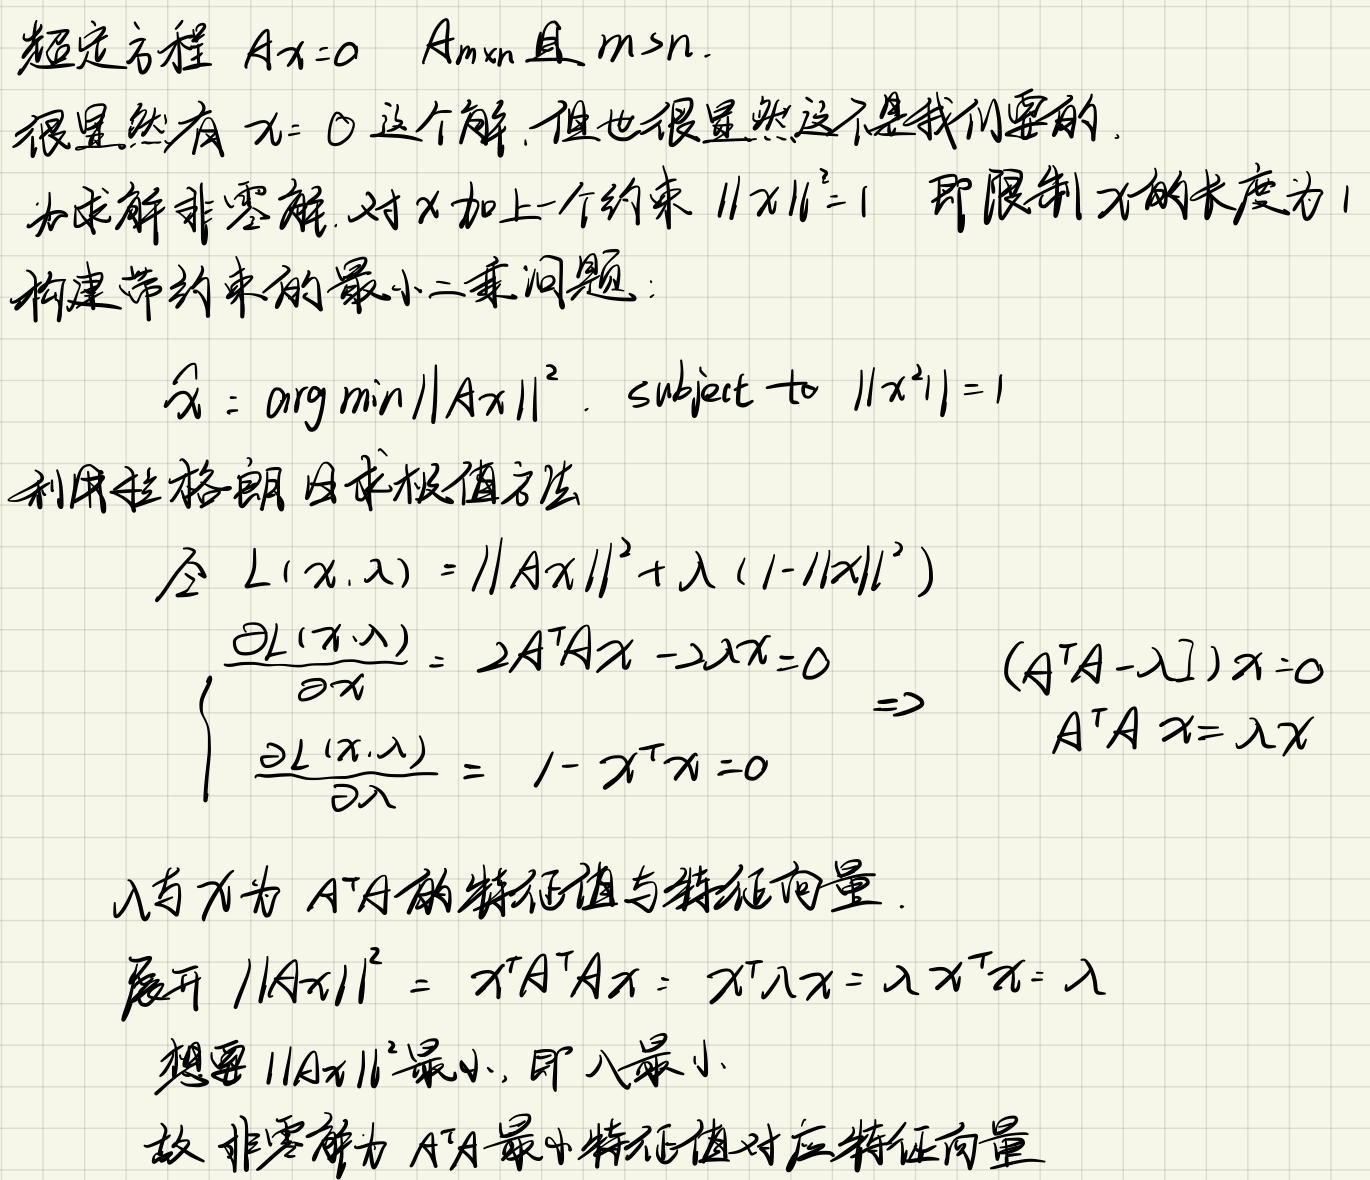 超定方程 Ax=0 Aₘₓₙ 且 m>n.
很显然有 x=0 这个解,但也很显然这不是我们要的.
为求解非零解.对x加上一个约束 ||x||²=1 即限制x的长度为1
构建带约束的最小二乘问题:
x̂ = arg min||Ax||². subject to ||x²||=1
利用拉格朗日求极值方法
令 L(x.λ) = ||Ax||²+λ(1-||x||²)
∂L(x.λ)/∂x = 2AᵀAx-2λx=0
∂L(x.λ)/∂λ = 1-xᵀx=0
=> (AᵀA-λI)x=0
AᵀAx=λx
λ与x为 AᵀA的特征值与特征向量.
展开 ||Ax||² = xᵀAᵀAx = xᵀλx = λxᵀx = λ
想要||Ax||²最小,即λ最小.
故 非零解为 AᵀA最小特征值对应特征向量